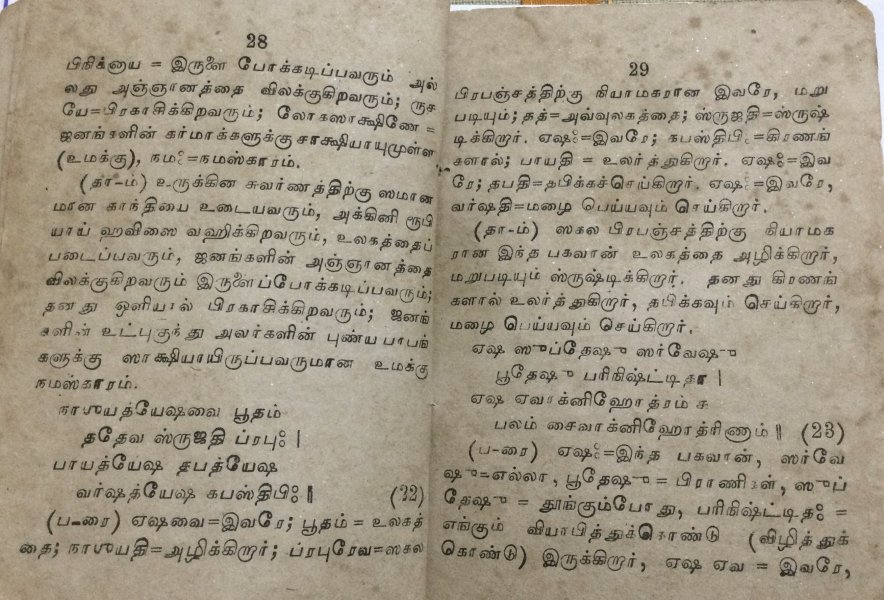 28
பிநிக்னாய = இருளை போக்கடிப்பவரும் அல்
லது அஞ்ஞானத்தை விலக்குகிறவரும்; ருச
யே=பிரகாசிக்கிறவரும்; லோகஸாக்ஷிணே =
ஜனங்களின் கர்மாக்களுக்கு சாக்ஷியாயுமுள்ள
(உமக்கு), நமஃ=நமஸ்காரம்.
(தா-ம்) உருக்கின சுவர்ணத்திற்கு ஸமான
மான காந்தியை உடையவரும், அக்கினி ரூபி
யாய் ஹவிஸை வஹிக்கிறவரும், உலகத்தைப்
படைப்பவரும், ஜனங்களின் அஞ்ஞானத்தை
விலக்குகிறவரும் இருளைப்போக்கடிப்பவரும்;
தனது ஒளியால் பிரகாசிக்கிறவரும்; ஜனங்
களின் உட்புகுந்து அவர்களின் புண்ய பாபங்
களுக்கு ஸாக்ஷியாயிருப்பவருமான உமக்கு
நமஸ்காரம்.
நாஶயத்யேஷவை பூதம்
ததேவ ஸ்ருஜதி ப்ரபுஃ |
பாயத்யேஷ தபத்யேஷ
வர்ஷத்யேஷ கபஸ்திபிஃ ‖ (22)
(ப-ரை) ஏஷவை=இவரே; பூதம் = உலகத்
தை; நாஶயதி=அழிக்கிறார்; ப்ரபுரேவ=ஸகல
29
பிரபஞ்சத்திற்கு நியாமகரான இவரே, மறு
படியும்; தத்=அவ்வுலகத்தை; ஸ்ருஜதி=ஸ்ருஷ்
டிக்கிறார். ஏஷஃ=இவரே; கபஸ்திபிஃ=கிரணங்
களால்; பாயதி = உலர்த்துகிறார். ஏஷஃ=இவ
ரே; தபதி=தபிக்கச்செய்கிறார். ஏஷஃ=இவரே,
வர்ஷதி=மழை பெய்யவும் செய்கிறார்.
(தா-ம்) ஸகல பிரபஞ்சத்திற்கு நியாமக
ரான இந்த பகவான் உலகத்தை அழிக்கிறார்,
மறுபடியும் ஸ்ருஷ்டிக்கிறார். தனது கிரணங்
களால் உலர்த்துகிறார், தபிக்கவும் செய்கிறார்,
மழை பெய்யவும் செய்கிறார்.
ஏஷ ஸுப்தேஷு ஸர்வேஷு
பூதேஷு பரிநிஷ்ட்டிதா |
ஏஷ ஏவாக்னிஹோத்ரம் ச
பலம் சைவாக்னிஹோத்ரிணாம் ‖ (23)
(ப-ரை) ஏஷஃ=இந்த பகவான், ஸர்வே
ஷு=எல்லா, பூதேஷு = பிராணிகள், ஸுப்
தேஷு = தூங்கும்போது, பரிநிஷ்ட்டிதஃ =
எங்கும் வியாபித்துக்கொண்டு (விழித்துக்
கொண்டு) இருக்கிறார், ஏஷ ஏவ = இவரே,